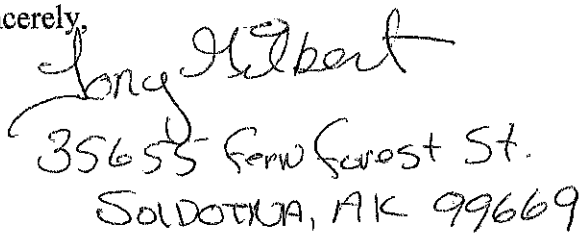 cerely,
Tony Gilbert
35655 Fernforest St.
SOLDOTNA, AK 99669